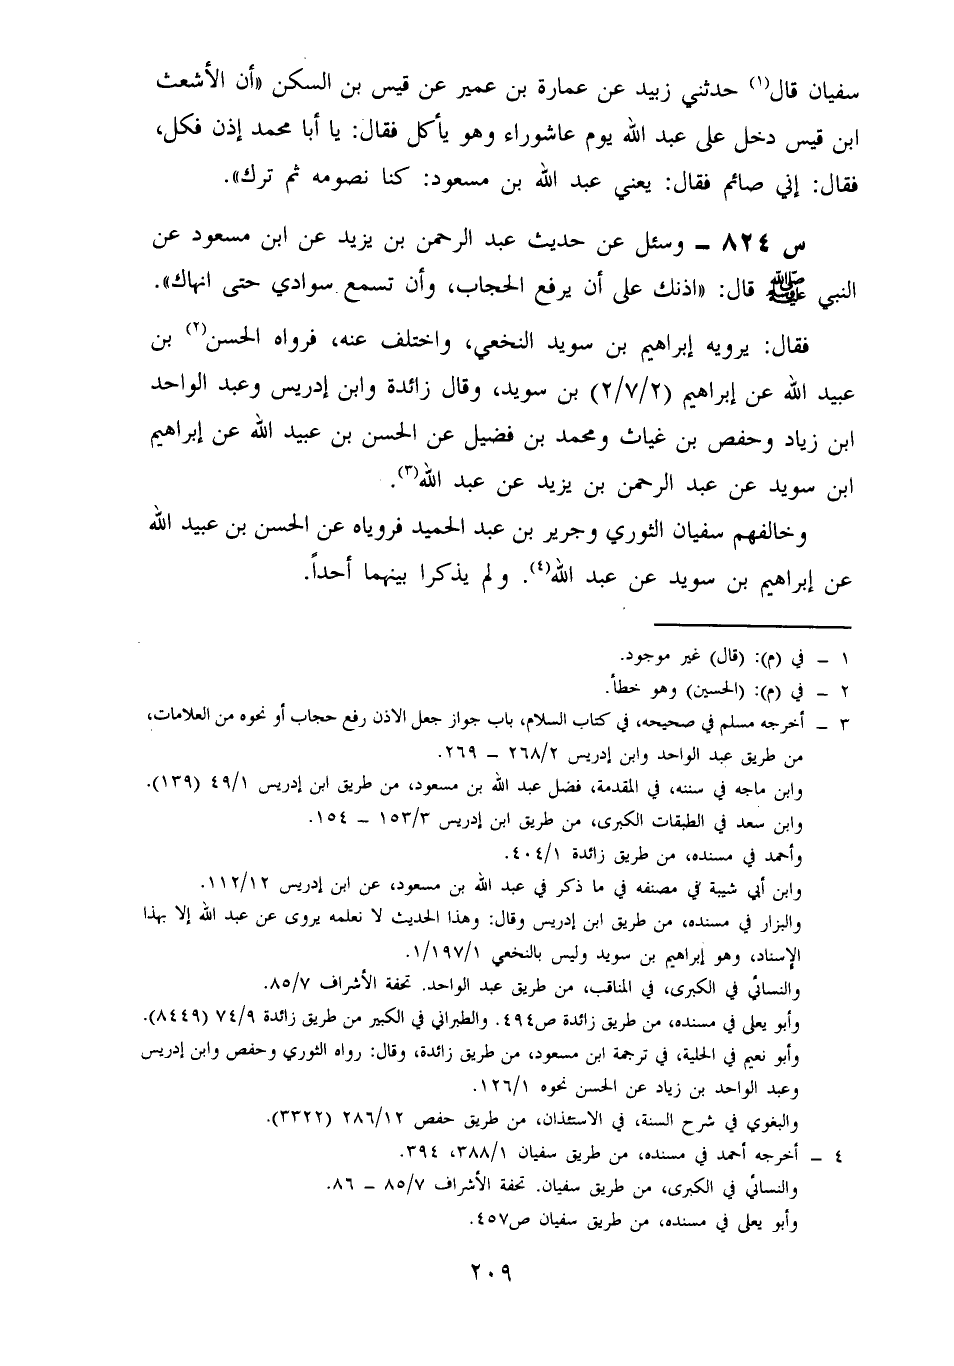 سفيان قال(١) حدثني زبيد عن عمارة بن عمير عن قيس بن السكن «أن الأشعث
ابن قيس دخل على عبد الله يوم عاشوراء وهو يأكل فقال: يا أبا محمد إذن فكل،
فقال: إني صائم فقال: يعني عبد الله بن مسعود: كنا نصومه ثم ترك».
س ٨٢٤ – وسئل عن حديث عبد الرحمن بن يزيد عن ابن مسعود عن
النبي ﷺ قال: «اذنك على أن يرفع الحجاب، وأن تسمع سوادي حتى انهاك».
فقال: يرويه إبراهيم بن سويد النخعي، واختلف عنه، فرواه الحسن(٢) بن
عبيد الله عن إبراهيم (٢/٧/٢) بن سويد، وقال زائدة وابن إدريس وعبد الواحد
ابن زياد وحفص بن غياث ومحمد بن فضيل عن الحسن بن عبيد الله عن إبراهيم
ابن سويد عن عبد الرحمن بن يزيد عن عبد الله(٣).
وخالفهم سفيان الثوري وجرير بن عبد الحميد فروياه عن الحسن بن عبيد الله
عن إبراهيم بن سويد عن عبد الله(٤). ولم يذكرا بينهما أحداً.
١ – في (م): (قال) غير موجود.
٢ – في (م): (الحسين) وهو خطأ.
٣ – أخرجه مسلم في صحيحه، في كتاب السلام، باب جواز جعل الاذن رفع حجاب أو نحوه من العلامات،
من طريق عبد الواحد وابن إدريس ٢٦٨/٢ – ٢٦٩.
وابن ماجه في سننه، في المقدمة، فضل عبد الله بن مسعود، من طريق ابن إدريس ٤٩/١ (١٣٩).
وابن سعد في الطبقات الكبرى، من طريق ابن إدريس ١٥٣/٣ – ١٥٤.
وأحمد في مسنده، من طريق زائدة ٤٠٤/١.
وابن أبي شيبة في مصنفه في ما ذكر في عبد الله بن مسعود، عن ابن إدريس ١١٢/١٢.
والبزار في مسنده، من طريق ابن إدريس وقال: وهذا الحديث لا نعلمه يروى عن عبد الله إلا بهذا
الإسناد، وهو إبراهيم بن سويد وليس بالنخعي ١/١٩٧/١.
والنسائي في الكبرى، في المناقب، من طريق عبد الواحد. تحفة الأشراف ٨٥/٧.
وأبو يعلى في مسنده، من طريق زائدة ص٤٩٤. والطبراني في الكبير من طريق زائدة ٧٤/٩ (٨٤٤٩).
وأبو نعيم في الحلية، في ترجمة ابن مسعود، من طريق زائدة، وقال: رواه الثوري وحفص وابن إدريس
وعبد الواحد بن زياد عن الحسن نحوه ١٢٦/١.
والبغوي في شرح السنة، في الاستئذان، من طريق حفص ٢٨٦/١٢ (٣٣٢٢).
٤ – أخرجه أحمد في مسنده، من طريق سفيان ٣٨٨/١، ٣٩٤.
والنسائي في الكبرى، من طريق سفيان. تحفة الأشراف ٨٥/٧ – ٨٦.
وأبو يعلى في مسنده، من طريق سفيان ص٤٥٧.
٢٠٩